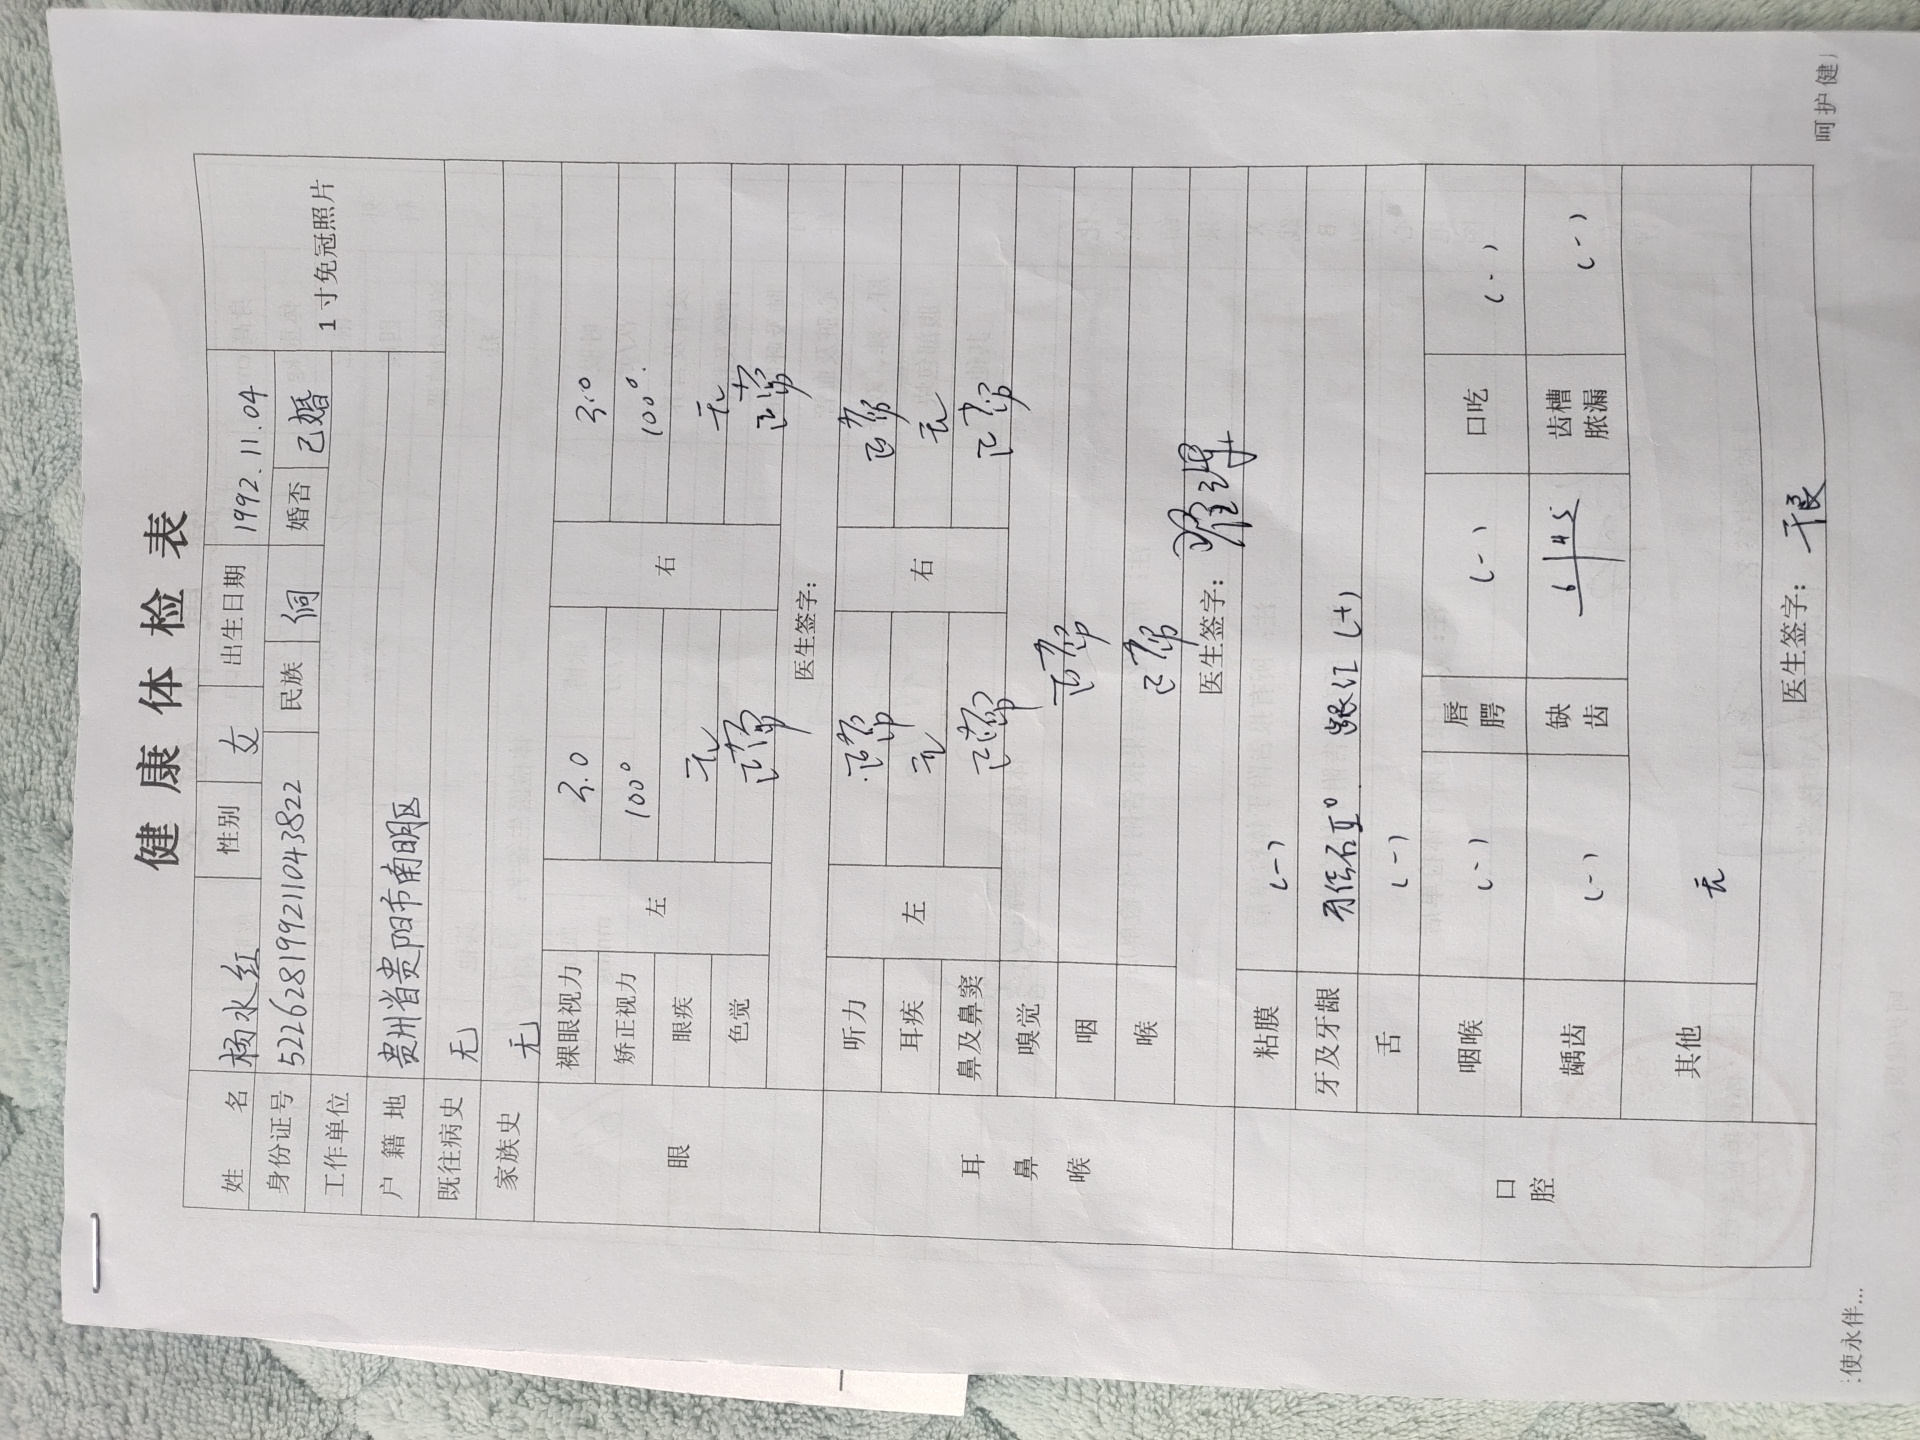 健康体检表
姓名 杨水红 性别 女 出生日期 1992.11.04 1寸免冠照片
身份证号 522628199211043822 民族 侗 婚否 已婚
工作单位
户籍地 贵州省贵阳市南明区
既往病史 无
家族史 无
眼
裸眼视力 左 3.0 右 3.0
矫正视力 100° 100°
眼疾 无 无
色觉 正常 正常
医生签字：
耳鼻喉
听力 左 正常 右 正常
耳疾 无 无
鼻及鼻窦 正常 正常
嗅觉
咽 正常
喉 正常
医生签字：
口腔
粘膜 (-)
牙及牙龈 牙结石II° 龈红(+)
舌 (-)
咽喉 (-) 唇腭 (-) 口吃 (-)
龋齿 (-) 缺齿 6 45 齿槽脓漏 (-)
其他 无
医生签字：
使永伴... 呵护健